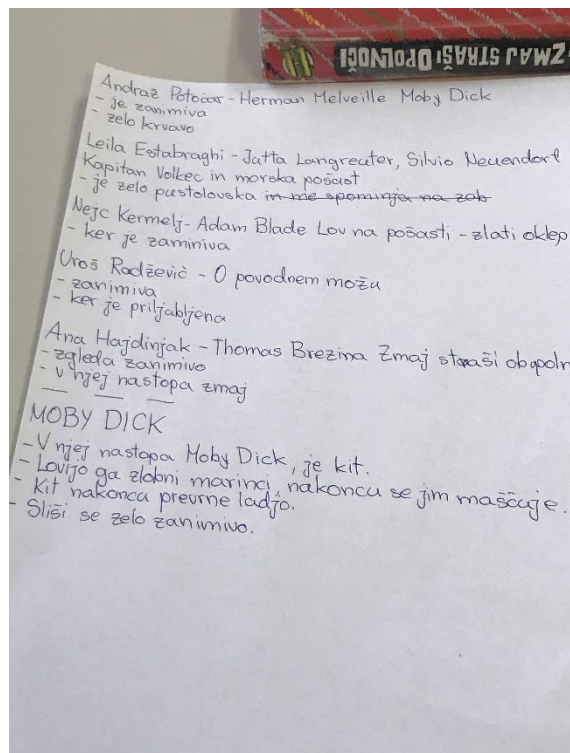 ZMAJ STRAŠI OPOLNOČI
Andraž Potočar - Herman Melveille Moby Dick
- je zanimiva
- zelo krvavo
Leila Estabraghi - Jutta Langreuter, Silvio Neuendorf
Kapitan Volkec in morska pošast
- je zelo pustolovska in me spominja na zob
Nejc Kermelj - Adam Blade Lov na pošasti - zlati oklep
- ker je zaminiva
Uroš Radžević - O povodnem možu
- zanimiva
- ker je priljabljena
Ana Hajdinjak - Thomas Brezina Zmaj straši obopoln
- zgleda zanimivo
- v njej nastopa zmaj
MOBY DICK
- V njej nastopa Moby Dick, je kit.
- Lovijo ga zlobni marinci, nakoncu se jim maščuje.
- Kit nakonca prevrne ladjo.
- Sliši se zelo zanimivo.